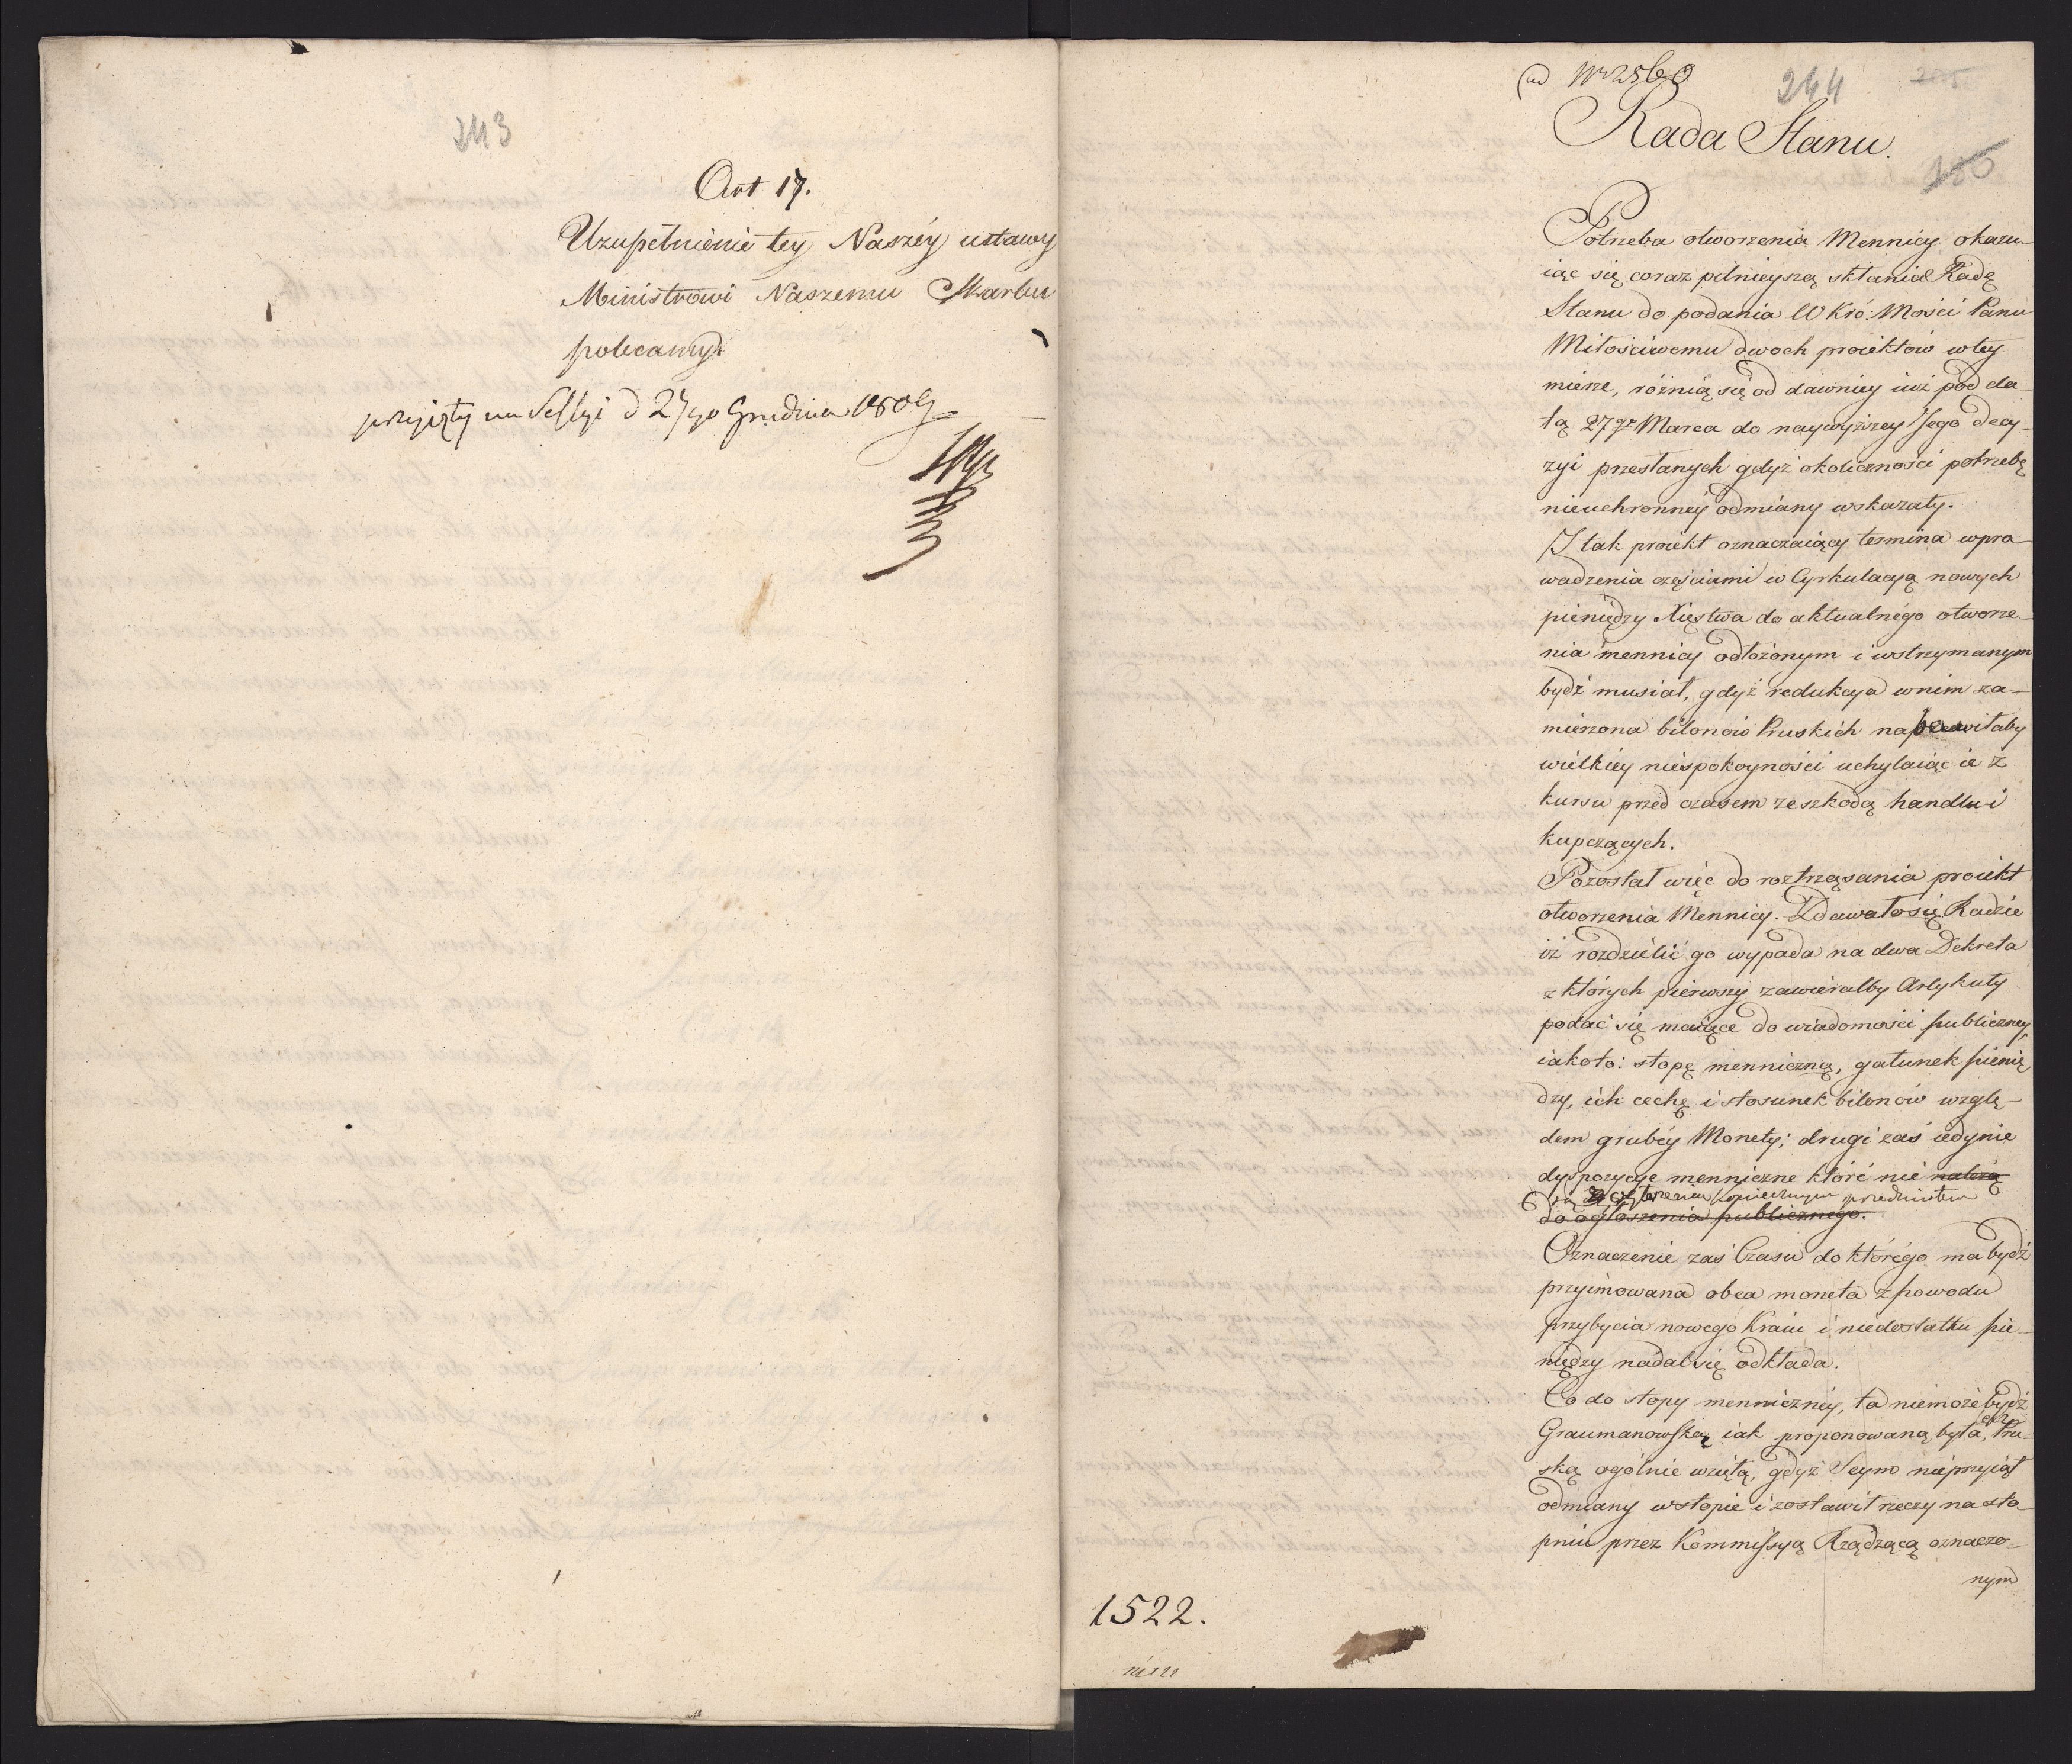 243
Art 17.
Uzupełnienie tey Naszéy ustawy
Ministrowi Naszemu Skarbu
polecamy.
przyięty na Sessyi d 27go Grudnia 1809
ad Nr 2560
244
Rada Stanu.
150
Potrzeba otworzenia Mennicy okazu-
iąc się coraz pilnieyszą skłania Radę
Stanu do podania W Kró: Mości Panu
Miłościwemu dwoch proiektów w tey
mierze, różnią się od dawniey iuż pod da-
tą 27go Marca do naywyższey Jego Decy-
zyi przesłanych gdyż okoliczności potrzebę
nieuchronnéy odmiany wskazały.
I tak proiekt oznaczaiący termina wpro-
wadzenia częściami w Cyrkulacyą nowych
pieniędzy Xięstwa do aktualnégo otworze-
nia mennicy odłożonym i wstrzymanym
bydź musiał, gdyż redukcya w nim za-
mierzona bilonów Pruskich nabawiłaby
wielkiey niespokoyności uchylaiąc ie z
kursu przed czasem ze szkodą handlu i
kupczących.
Pozostał więc do roztrząsania proiekt
otworzenia Mennicy. Zdawało się Radzie
iż rozdzielić go wypada na dwa Dekreta
z których pierwszy zawierałby Artykuły
podać się maiące do wiadomości publiczney,
iakoto: stopę menniczną, gatunek pienię
dzy, ich cechę i stosunek bilonów wzglę-
dem grubéy Monety; drugi zaś iedynie
dyspozycye menniczne któré nie należą
są koniecznym przedmiotem
do ogłoszenia publicznego.
Oznaczenie zaś Czasu do którégo ma bydź
przyimowana obca moneta z powodu
przybycia nowego Kraiu i niedostatku pie-
niędzy nadal się odkłada.
Co do stopy mennicznéy, ta niemoże bydź
Graumanowską iak proponowaną była, Pru-
ską ogólnie wziętą, gdyż Seym nieprzyiął
odmiany w stopie i zostawił rzeczy na sto-
pniu przez Kommissyą Rządzącą oznaczo-
nym
1522.